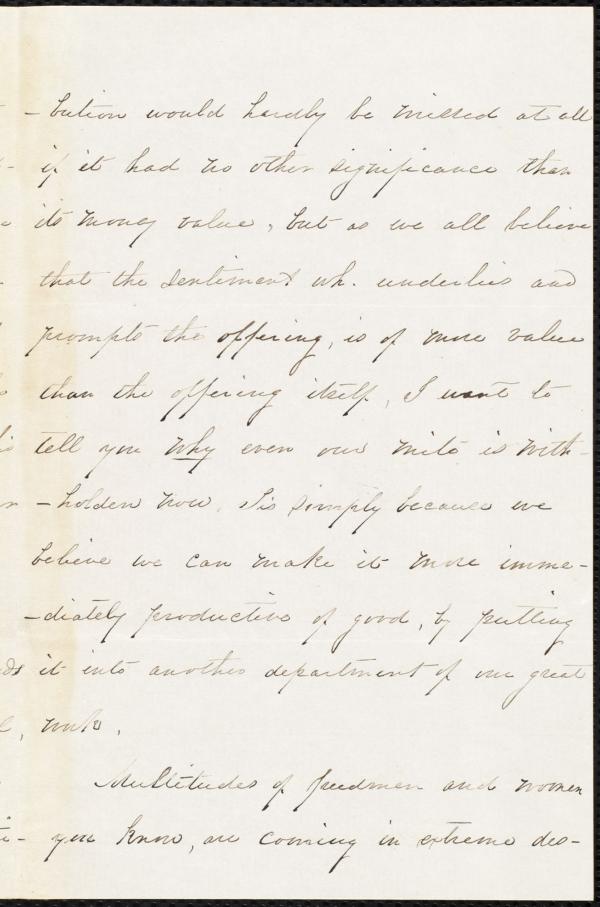 -bution would hardly be missed at all
if it had no other significance than
its money value, but as we all believe
that the sentiment wh. underlies and
prompts the offering, is of more value
than the offering itself, I want to
tell you why even our mite is with-
-holden now. 'Tis simply because we
believe we can make it more imme-
-diately productive of good, by putting
it into another department of our great
work.
Multitudes of freedmen and women
you know, are coming in extreme des-